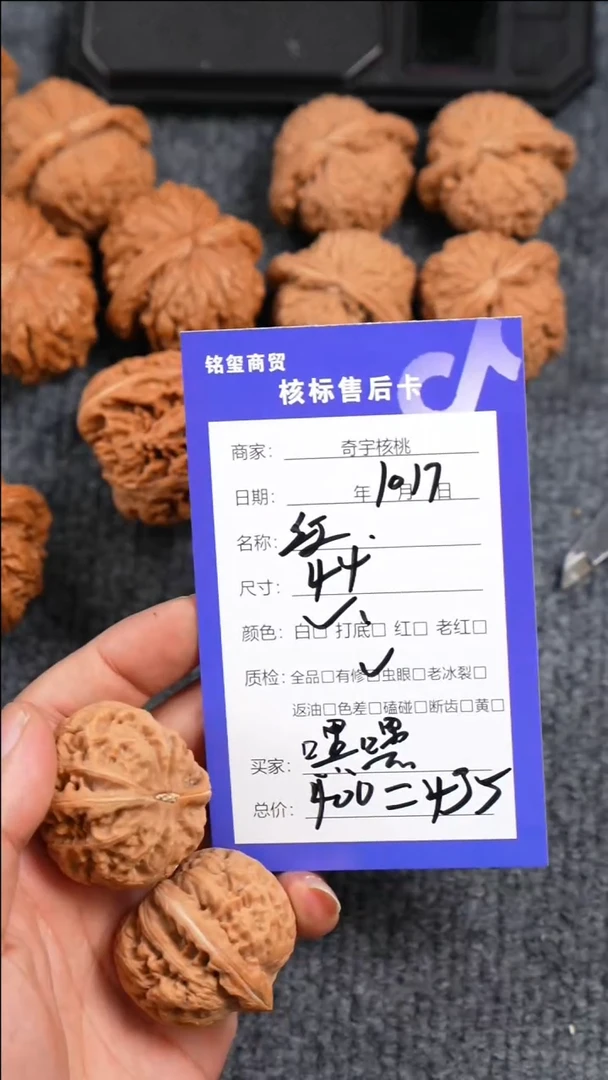 铭玺商贸
核标售后卡
商家: 奇宇核桃
日期: 年10月17日
名称: 红
尺寸: 44
颜色: 白□ 打底□ 红□ 老红□
质检: 全品□有修□虫眼□老冰裂□
返油□色差□磕碰□断齿□黄□
买家: 嘿嘿
总价: 400=435